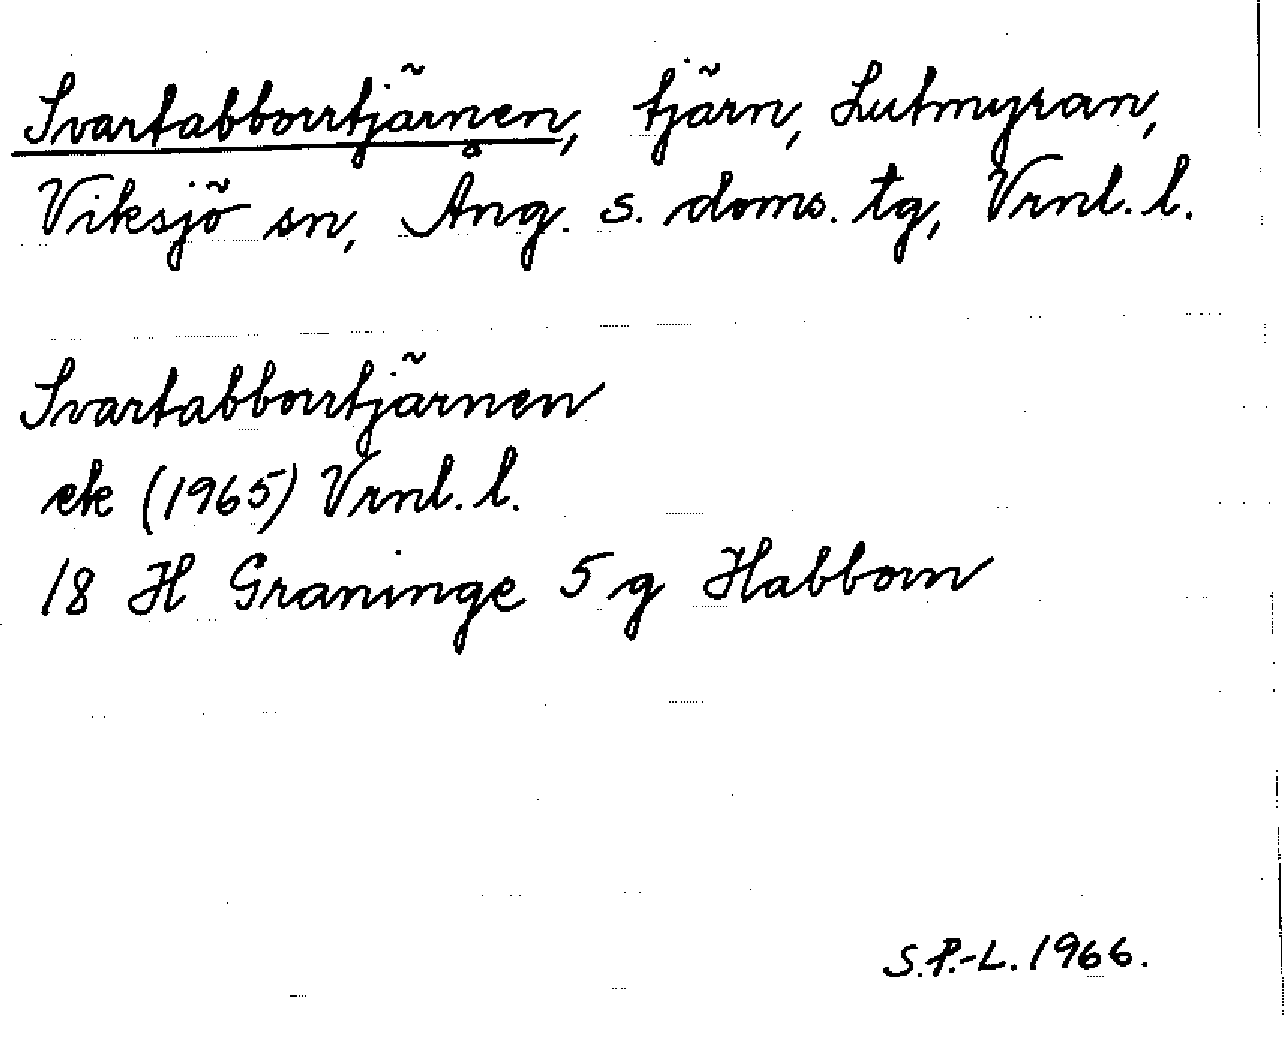 Svartabborrtjärnen, tjärn, Lutmyran,
Viksjö sn, Ång. s. doms. tg, Vrnl. l.
Svartabborrtjärnen
ek (1965) Vrnl. l.
18 H Graninge 5 g Habborn
S.P.-L. 1966.